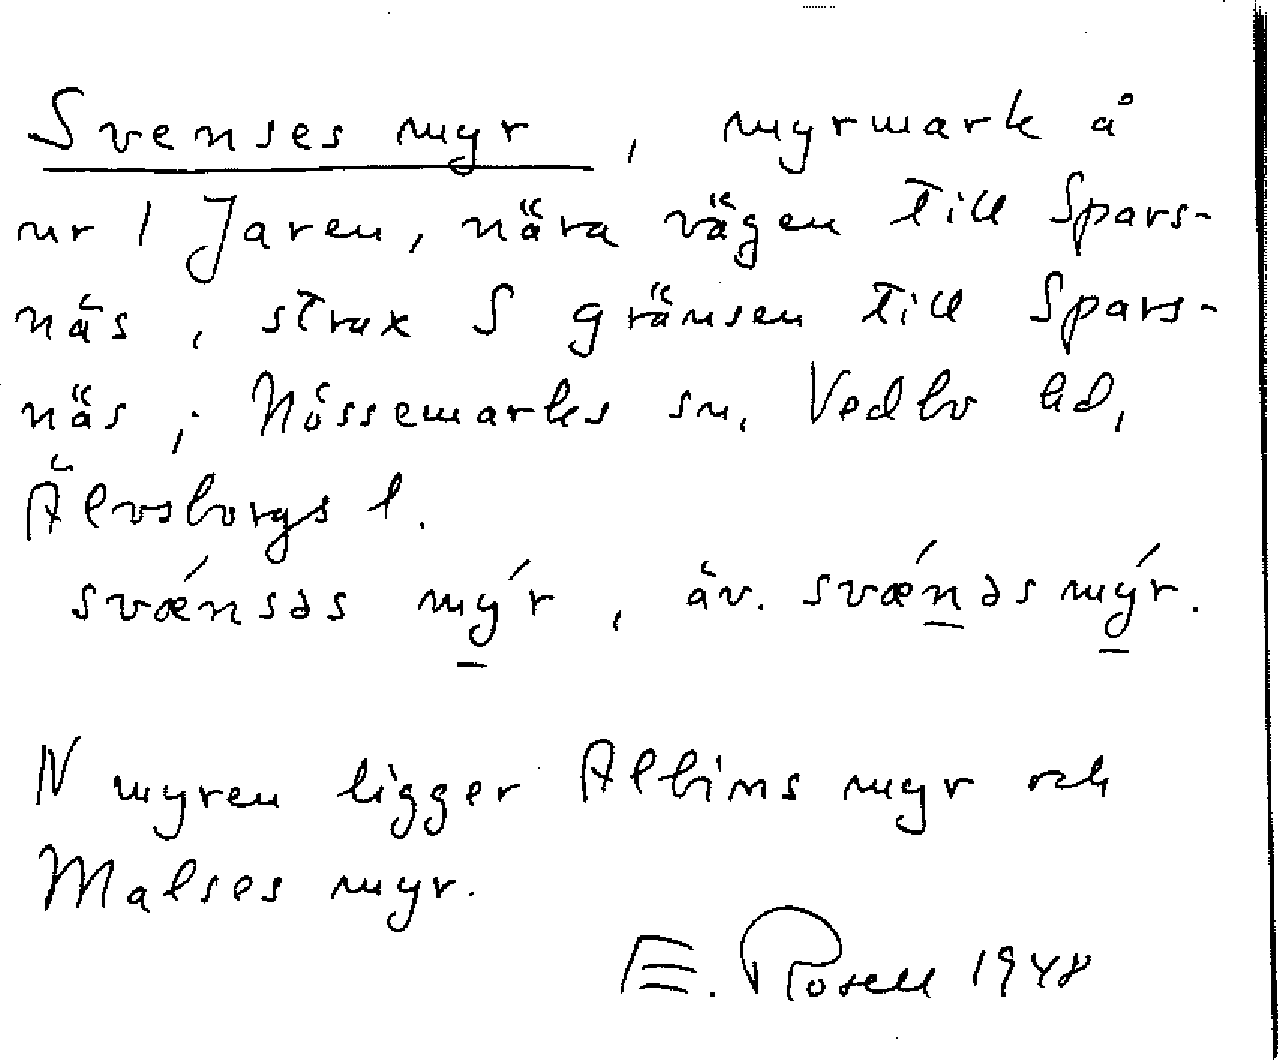 Svenses myr, myrmark å
nr 1 Jaren, nära vägen till Spars-
näs, strax S gränsen till Spars-
näs; Nössemarks sn, Vedbo hd,
Älvsborgs l.
svǽnsəs mý̠r, äv. svǽn̠əs mý̠r.
N myren ligger Albins myr och
Malses myr.
E. Rosell 1948